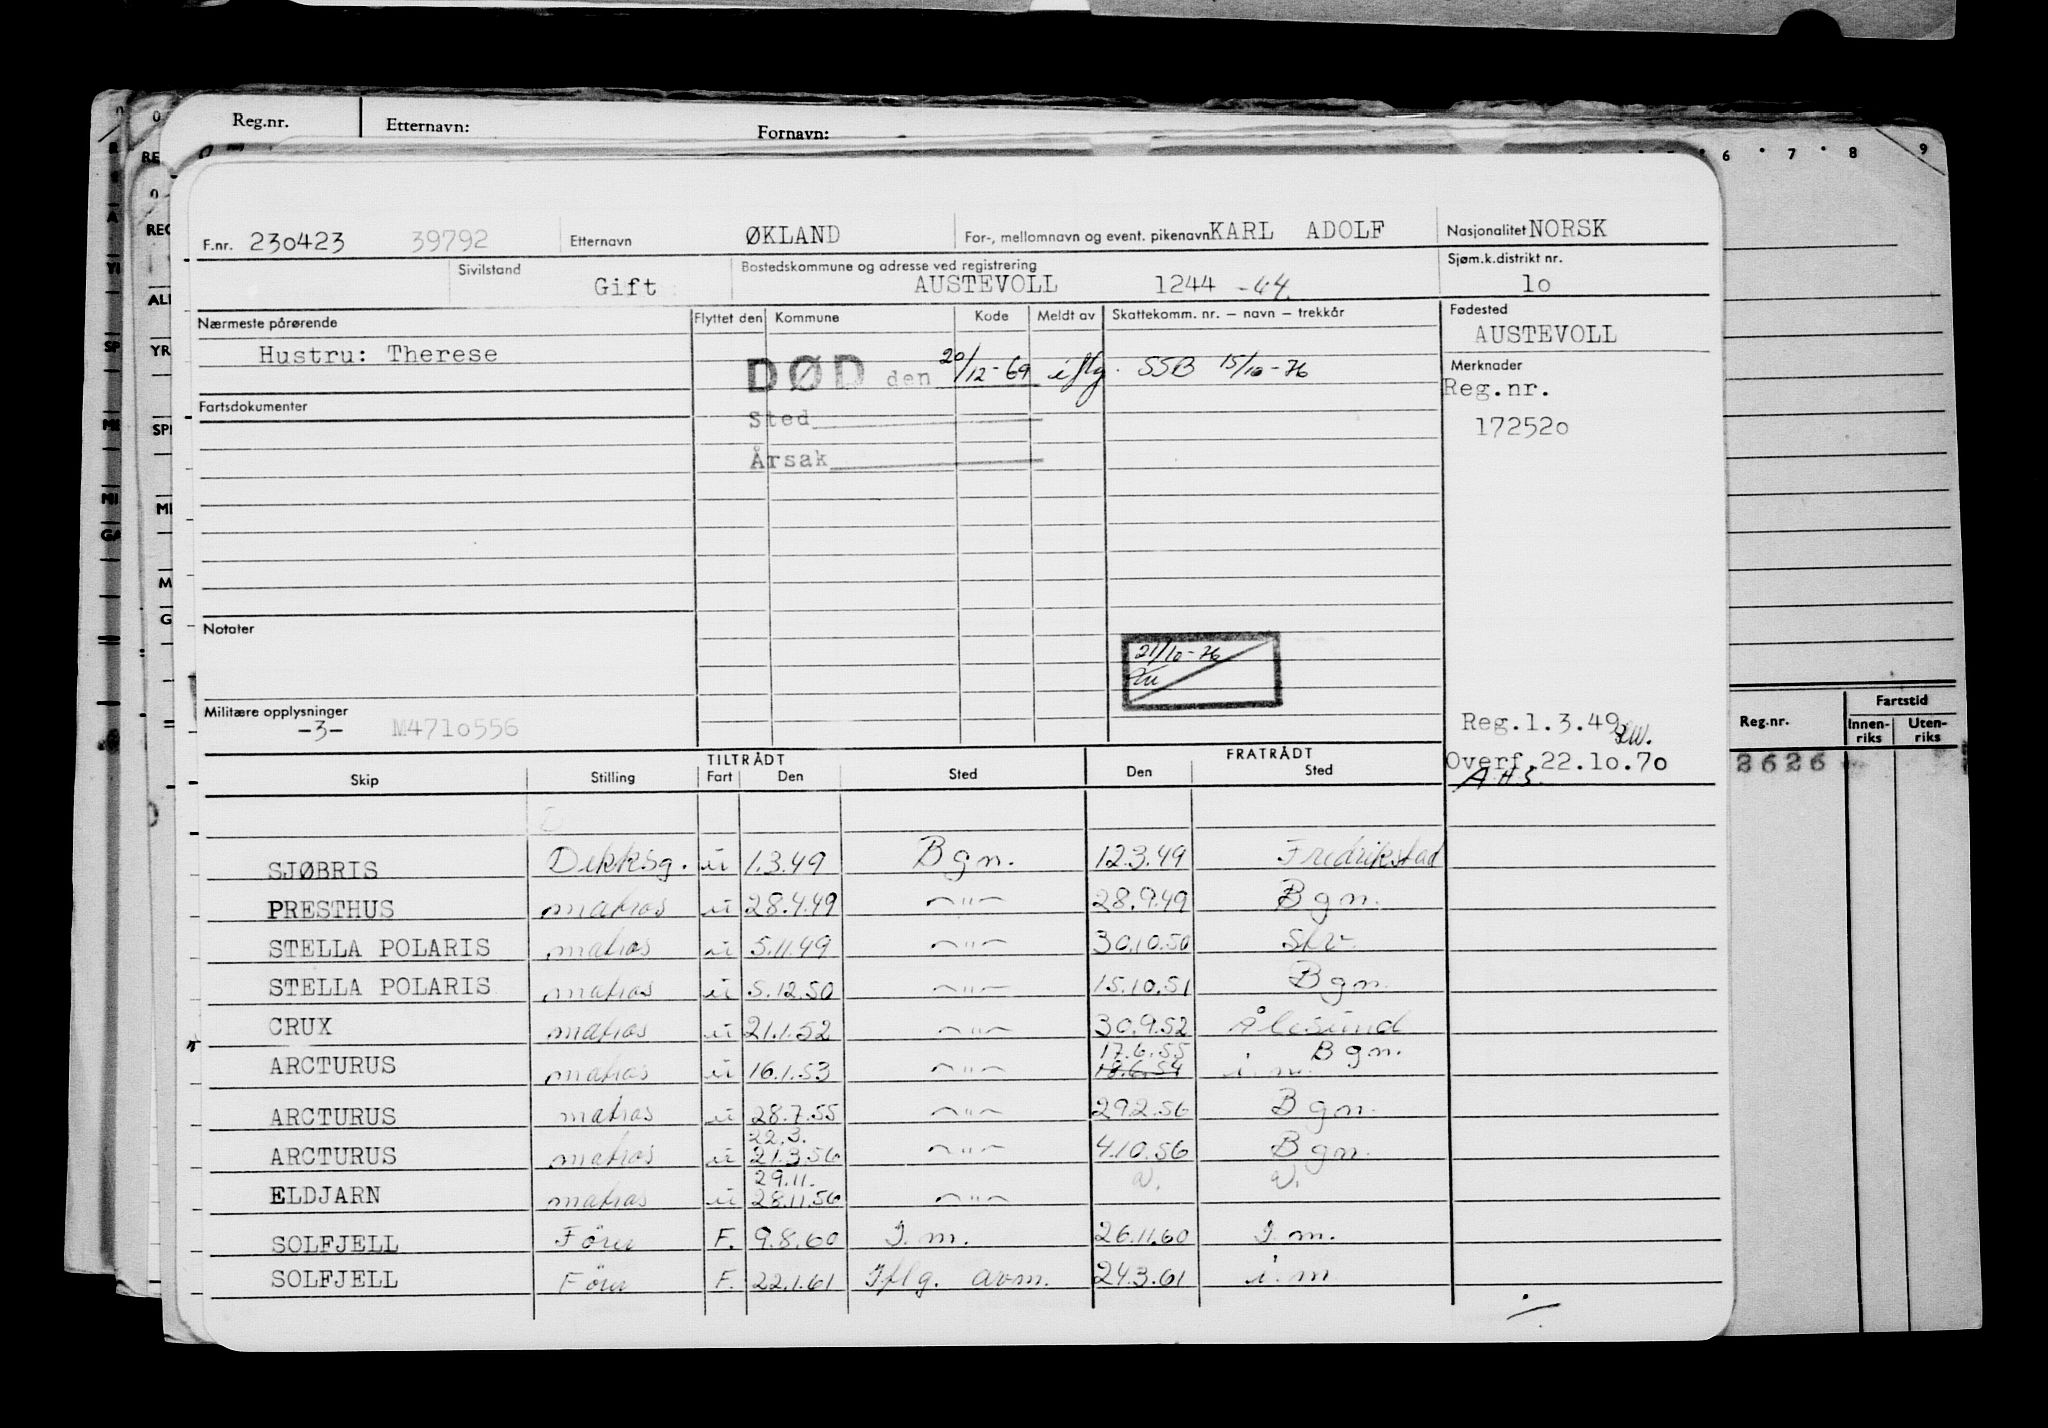 Reg.nr. Etternavn: Fornavn:
6 7 8 9
F.nr. 230423 39792 Etternavn ØKLAND For-, mellomnavn og event. pikenavn KARL ADOLF Nasjonalitet NORSK
Sivilstand Gift Bostedskommune og adresse ved registrering AUSTEVOLL 1244 -44. Sjøm.k.distrikt nr. 10
Nærmeste pårørende Flyttet den Kommune Kode Meldt av Skattekomm. nr. – navn – trekkår Fødested
Hustru: Therese AUSTEVOLL
DØD den 20/12-69 iflg. SSB 15/10-76 Merknader
Reg.nr.
Fartsdokumenter Sted 17252o
Årsak
Notater
21/10-76
Militære opplysninger
-3- M471o556 Reg.1.3.49
Overf.22.1o.7o
A.H.S.
Reg.nr. Fartstid
Innen-riks Uten-riks
2626
TILTRÅDT FRATRÅDT
Skip Stilling Fart Den Sted Den Sted
SJØBRIS Dekksg. u 1.3.49 Bgn. 12.3.49 Fredrikstad
PRESTHUS matros u 28.4.49 —"— 28.9.49 Bgn.
STELLA POLARIS matros u 5.11.49 —"— 30.10.50
STELLA POLARIS matros u 5.12.50 —"— 15.10.51 Bgn.
CRUX matros u 21.1.52 —"— 30.9.52 Ålesund
17.6.55 Bgn.
ARCTURUS matros u 16.1.53 —"— 18.6.54 i.m.
ARCTURUS matros u 28.7.55 —"— 29.2.56 Bgn.
22.3.
ARCTURUS matros u 21.3.56 —"— 4.10.56 Bgn.
29.11.
ELDJARN matros u 28.11.56 —"—
SOLFJELL Förer F. 9.8.60 I.m. 26.11.60 I.m.
SOLFJELL Förer F. 22.1.61 Iflg. avm. 24.3.61 i.m